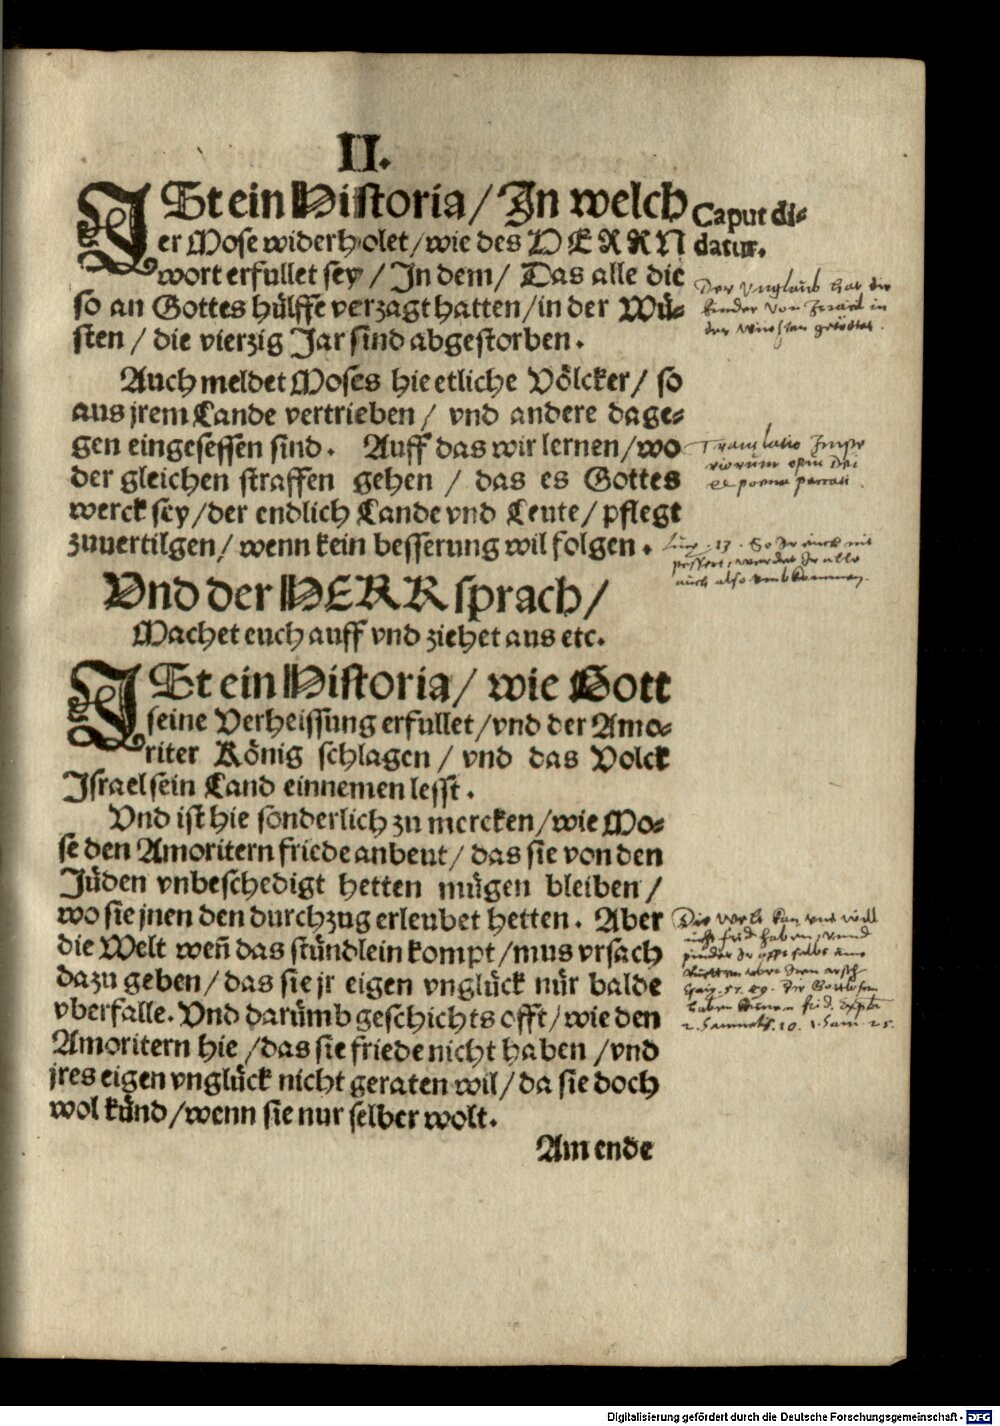 II.
ISt ein Historia / In welch
er Mose widerholet / wie des HERRN
wort erfullet sey / In dem / Das alle die
so an Gottes hülffe verzagt hatten / in der Wü-
sten / die vierzig Jar sind abgestorben.
Caput di-
datur.
Der Unglaub hat die
kinder von Israel in
der Wuesten getöttet.
Auch meldet Moses hie etliche Völcker / so
aus jrem Lande vertrieben / vnd andere dage-
gen eingesessen sind. Auff das wir lernen / wo
der gleichen straffen gehen / das es Gottes
werck sey / der endlich Lande vnd Leute / pflegt
zuuertilgen / wenn kein besserung wil folgen.
Translatio Impe
riorum opus Dei
et poena peccati.
Luc. 13. So Ir euch nit
bessert, werdet Ir alle
auch also umbkommen.
Vnd der HERR sprach /
Machet euch auff vnd ziehet aus etc.
ISt ein Historia / wie Gott
seine Verheissung erfullet / vnd der Amo-
riter König schlagen / vnd das Volck
Israel sein Land einnemen lesst.
Vnd ist hie sonderlich zu mercken / wie Mo-
se den Amoritern friede anbeut / das sie von den
Jüden vnbeschedigt hetten mügen bleiben /
wo sie jnen den durchzug erleubet hetten. Aber
die Welt weñ das stündlein kompt / mus vrsach
dazu geben / das sie jr eigen vnglück nür balde
vberfalle. Vnd darümb geschichts offt / wie den
Amoritern hie / das sie friede nicht haben / vnd
jres eigen vnglück nicht geraten wil / da sie doch
wol künd / wenn sie nur selber wolt.
Die Welt kan und will
nicht frid haben, unnd
bindet Ir offt selbs eine
Rutten uber Iren arsch
Die Gottlosen
haben keinen frid.
2. Samuelis. 10. 1. Sam. 25.
Am ende
Digitalisierung gefördert durch die Deutsche Forschungsgemeinschaft - DFG